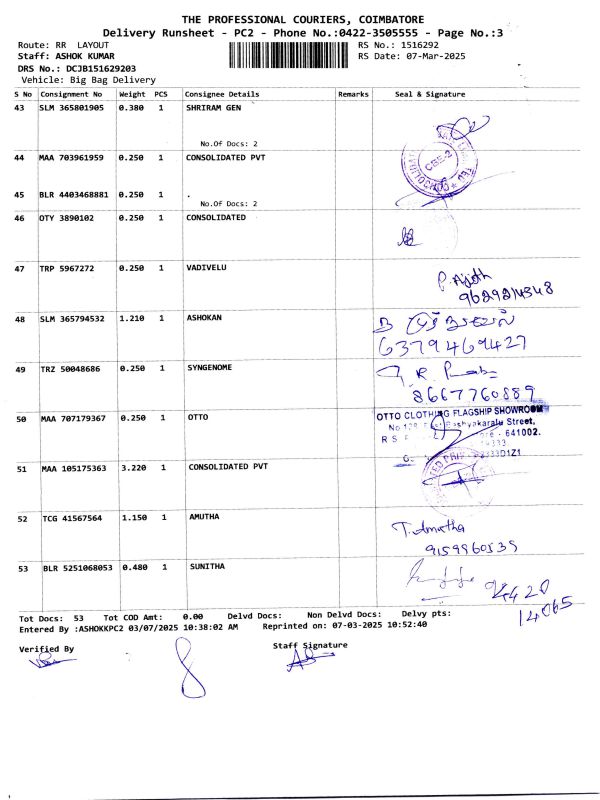 THE PROFESSIONAL COURIERS, COIMBATORE
Delivery Runsheet - PC2 - Phone No.:0422-3505555 - Page No.:3
Route: RR LAYOUT RS No.: 1516292
Staff: ASHOK KUMAR RS Date: 07-Mar-2025
DRS No.: DCJB151629203
Vehicle: Big Bag Delivery
S No Consignment No Weight PCS Consignee Details Remarks Seal & Signature
43 SLM 365801905 0.380 1 SHRIRAM GEN
No.Of Docs: 2
CBE-2
44 MAA 703961959 0.250 1 CONSOLIDATED PVT
45 BLR 4403468881 0.250 1 .
No.Of Docs: 2
46 OTY 3890102 0.250 1 CONSOLIDATED
47 TRP 5967272 0.250 1 VADIVELU
P. Ajith
9629214348
48 SLM 365794532 1.210 1 ASHOKAN
6379469427
49 TRZ 50048686 0.250 1 SYNGENOME
8667760889
50 MAA 707179367 0.250 1 OTTO
OTTO CLOTHING FLAGSHIP SHOWROOM
Bashyakaralu Street,
R S - 641002.
51 MAA 105175363 3.220 1 CONSOLIDATED PVT
52 TCG 41567564 1.150 1 AMUTHA
T. Amutha
9159960535
53 BLR 5251068053 0.480 1 SUNITHA
94420
14065
Tot Docs: 53 Tot COD Amt: 0.00 Delvd Docs: Non Delvd Docs: Delvy pts:
Entered By :ASHOKKPC2 03/07/2025 10:38:02 AM Reprinted on: 07-03-2025 10:52:40
Verified By Staff Signature